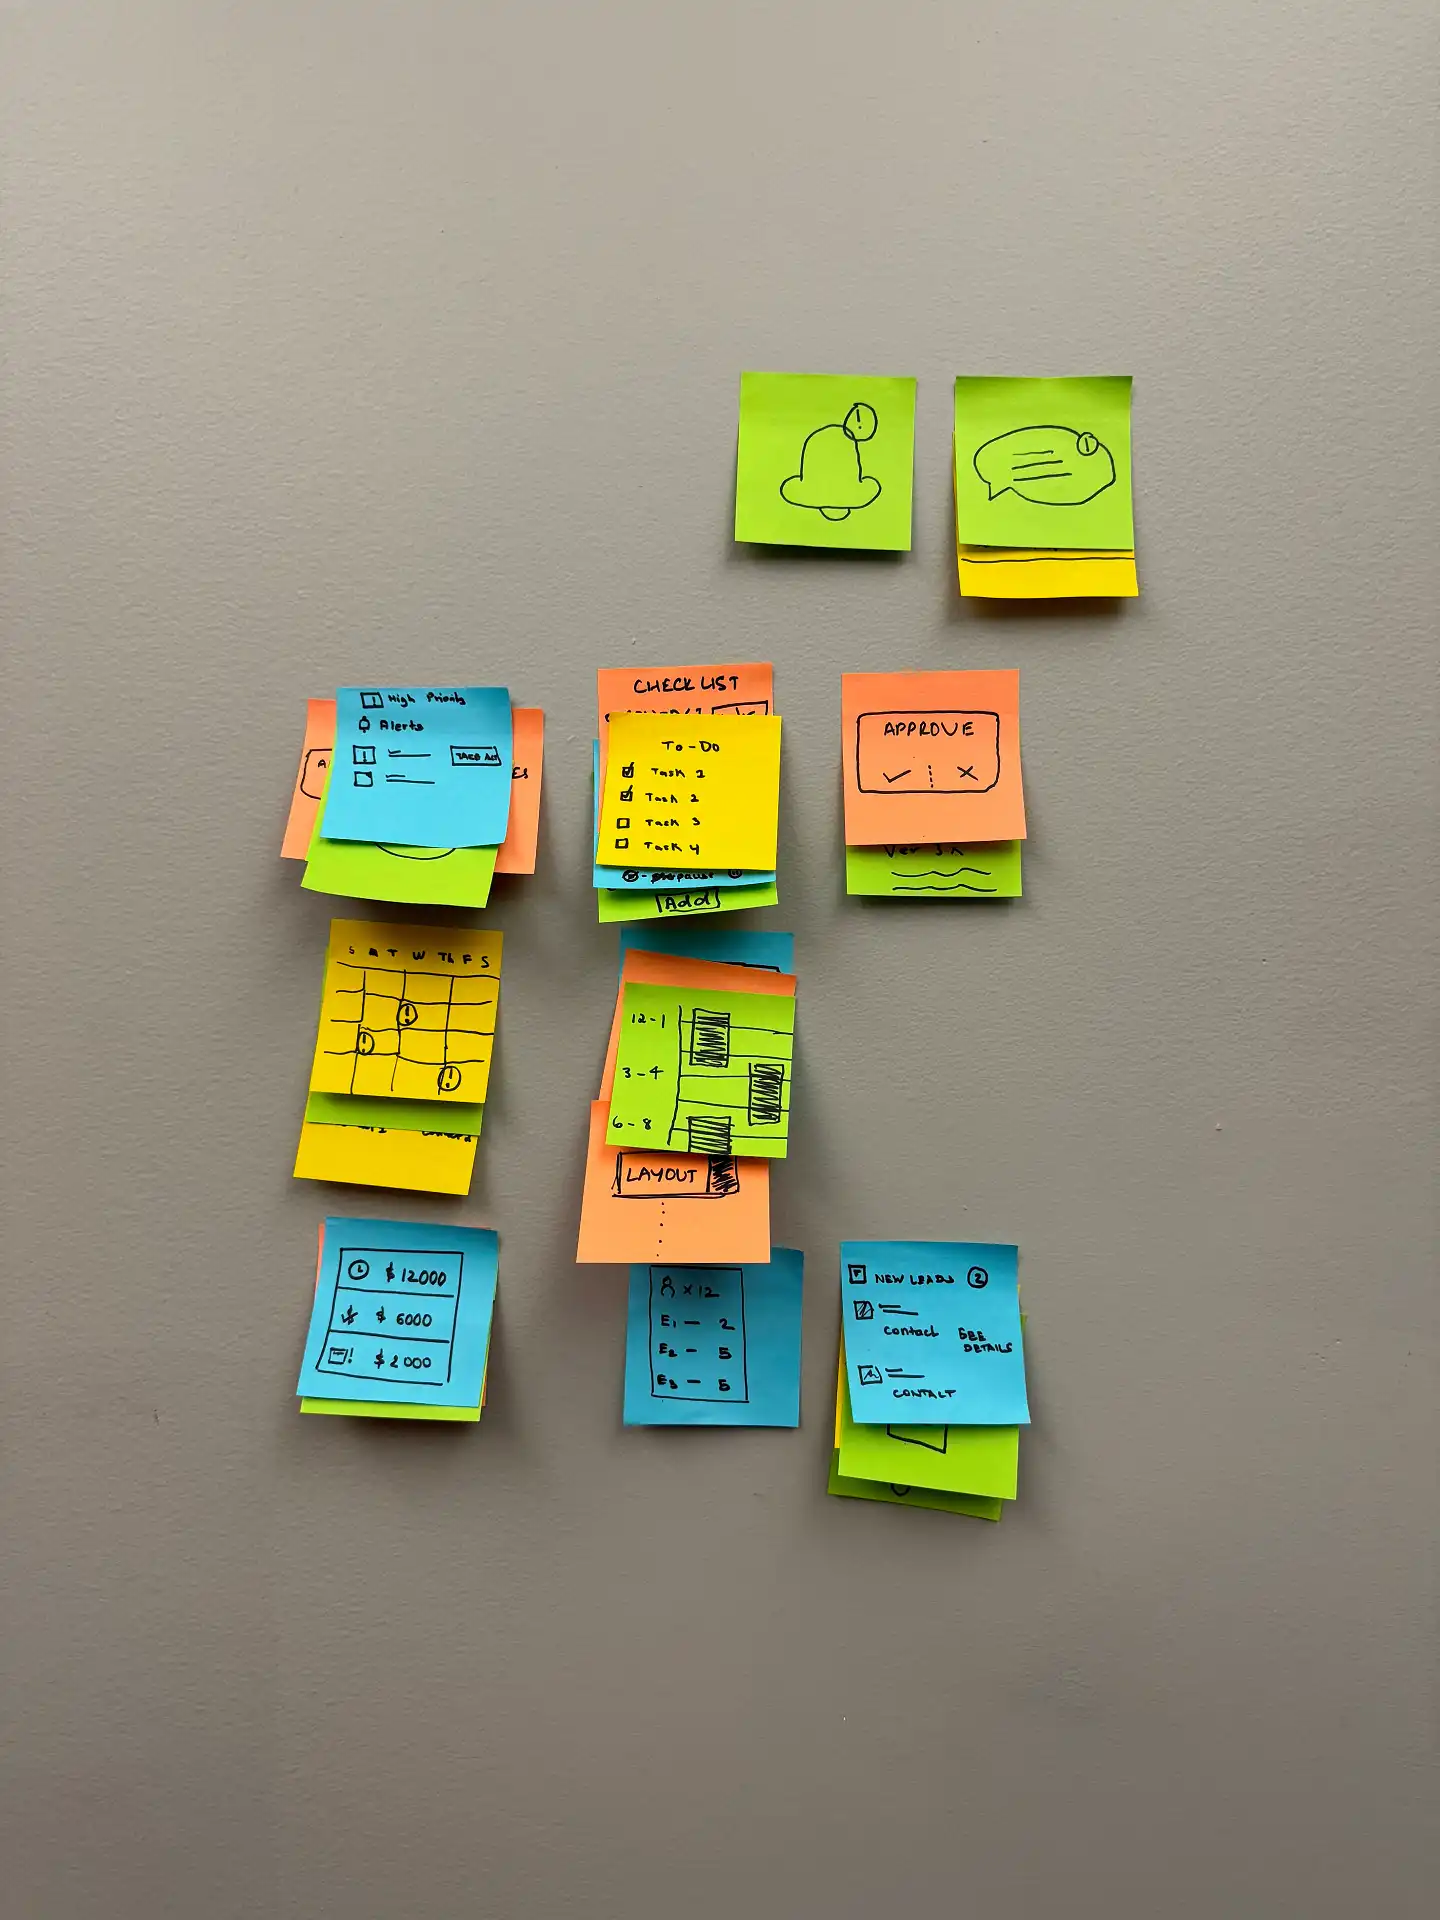 !
!
! High Priority
Alerts
!
A
ES
CHECKLIST
To-DO
Task 1
Task 2
Task 3
Task 4
pause
Add
APPROVE
Ver 3.x
S M T W Th F S
!
!
!
12-1
3-4
6-8
LAYOUT
$12000
$ 6000
! $2000
x12
E1 — 2
E2 - 5
E3 - 5
NEW LEADS 2
contact SEE
DETAILS
CONTACT